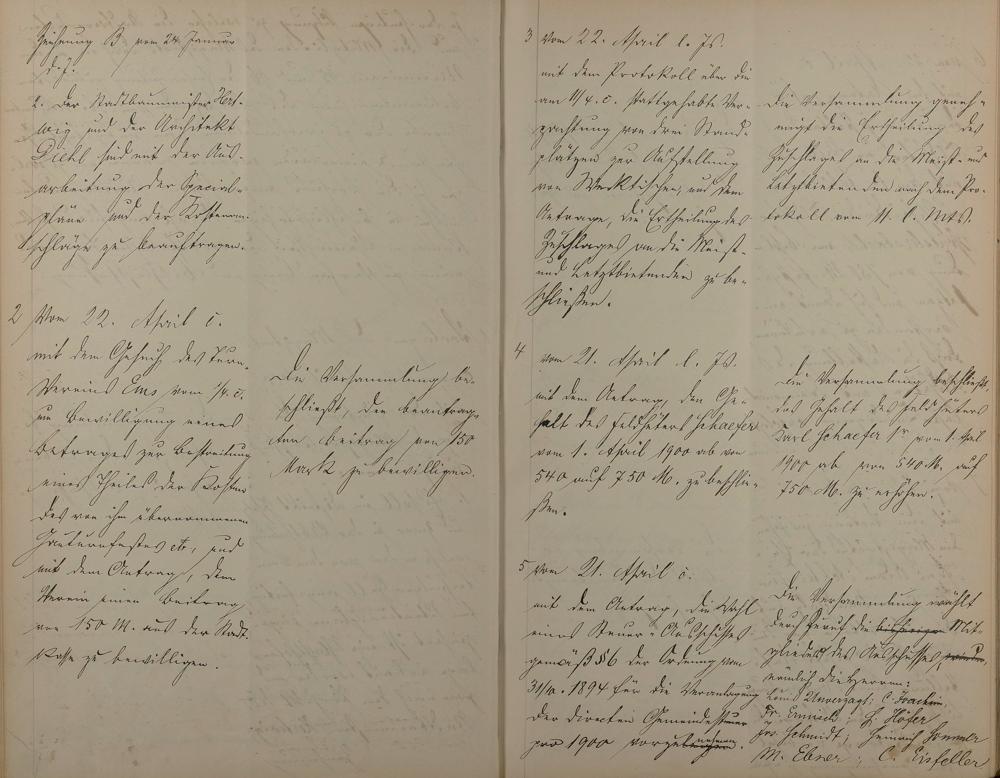 Zeichnung B vom 24. Januar
d. J.
2. Der Stadtbaumeister Hert-
wig und der Architekt
Diehl sind mit der Aus-
arbeitung der Special-
pläne und der Kostenan-
schläge zu beauftragen.
2 Vom 22. April c.
mit dem Gesuch des Turn-
Vereins Ems vom 1/4. c.
um Bewilligung eines
Betrages zur Bestreitung
eines Theiles der Kosten
des von ihm übernommenen
Gauturnfestes etc, und
mit dem Antrag, dem
Verein einen Beitrag
von 150 M. aus der Stadt-
kasse zu bewilligen.
Die Versammlung be-
schließt, den beantrag-
ten Beitrag von 150
Mark zu bewilligen.
3 Vom 22. April l. Js.
mit dem Protokoll über die
am 11/4. c. stattgehabte Ver-
pachtung von drei Stand-
plätzen zur Aufstellung
von Werktischen, und dem
Antrage, die Ertheilung des
Zuschlages an die Meist-
und Letztbietenden zu be-
schließen.
Die Versammlung geneh-
migt die Ertheilung des
Zuschlages an die Meist- und
Letztbietenden nach dem Pro-
tokoll vom 11. l. Mts.
4 vom 21. April l. Js.
mit dem Antrag, den Ge-
halt des Feldhüters Schaefer
vom 1. April 1900 ab von
540 auf 750 M. zu beschlie-
ßen.
Die Versammlung beschließt
das Gehalt des Feldhüters
Carl Schaefer 1r vom 1. April
1900 ab von 540 M. auf
750 M. zu erhöhen.
5 Vom 21. April c.
mit dem Antrag, die Wahl
eines Steuer-Ausschusses
gemäß § 6 der Ordnung vom
31/10. 1894 für die Veranlagung
der directen Gemeindesteuer
pro 1900 vorzunehmen.
Die Versammlung wählt
durch Zuruf die bisherigen Mit-
glieder des Ausschusses,
nämlich die Herren:
Louis Unverzagt; C. Joachim
Fr. Ermisch; H. Höfer
Jos. Schmidt; Heinrich Sommer
M. Ebner; C. Eisfeller